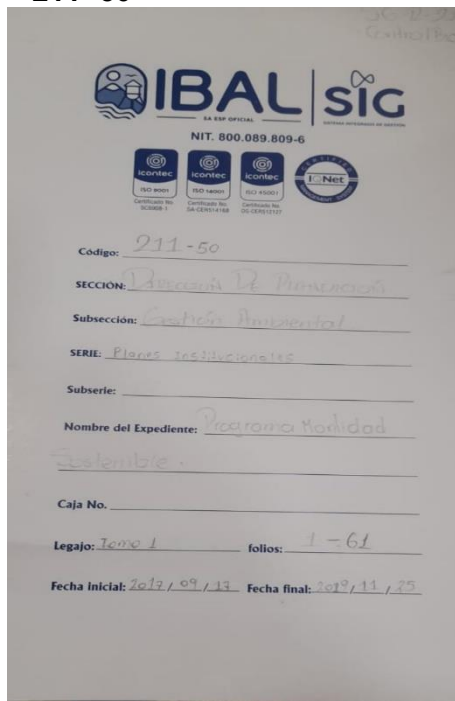 211-50
IBAL SIG
SA ESP OFICIAL
SISTEMA INTEGRADO DE GESTIÓN
NIT. 800.089.809-6
icontec icontec icontec IQNet
ISO 9001 ISO 14001 ISO 45001
Certificado No. Certificado No. Certificado No.
Código: 211-50
SECCIÓN: Dirección De Planeación
Subsección: Gestión Ambiental
SERIE: Planes Institucionales
Subserie:
Nombre del Expediente: Programa Movilidad
Sostenible.
Caja No.
Legajo: Tomo 1 folios: 1-61
Fecha inicial: 2017/09/17 Fecha final: 2019/11/25